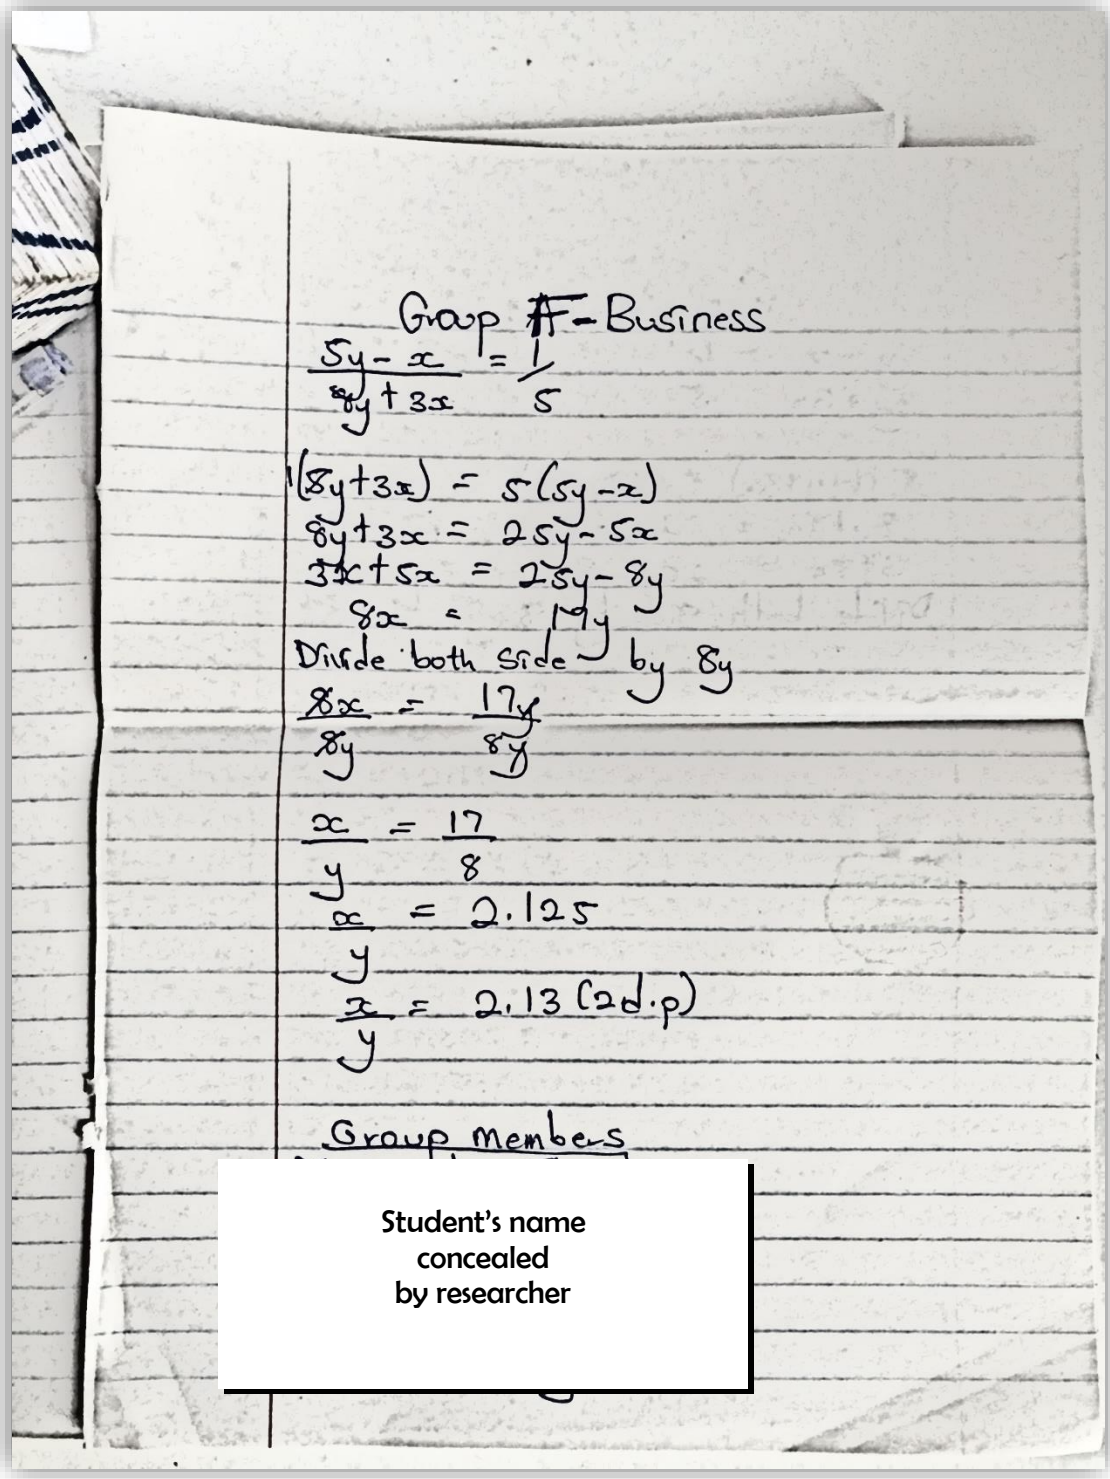 Group F - Business
5y - x = 1/5
8y + 3x
1(8y+3x) = 5(5y-x)
8y+3x = 25y-5x
3x+5x = 25y-8y
8x = 17y
Divide both side by 8y
8x = 17y
8y 8y
x = 17
y 8
x = 2.125
y
x = 2.13 (2d.p)
y
Group members
Student's name
concealed
by researcher